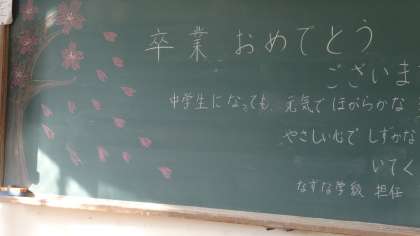 卒業 おめでとう
ございま
中学生になっても 元気で ほがらかな
やさしい心で しずかな
いてく
なずな学級 担任